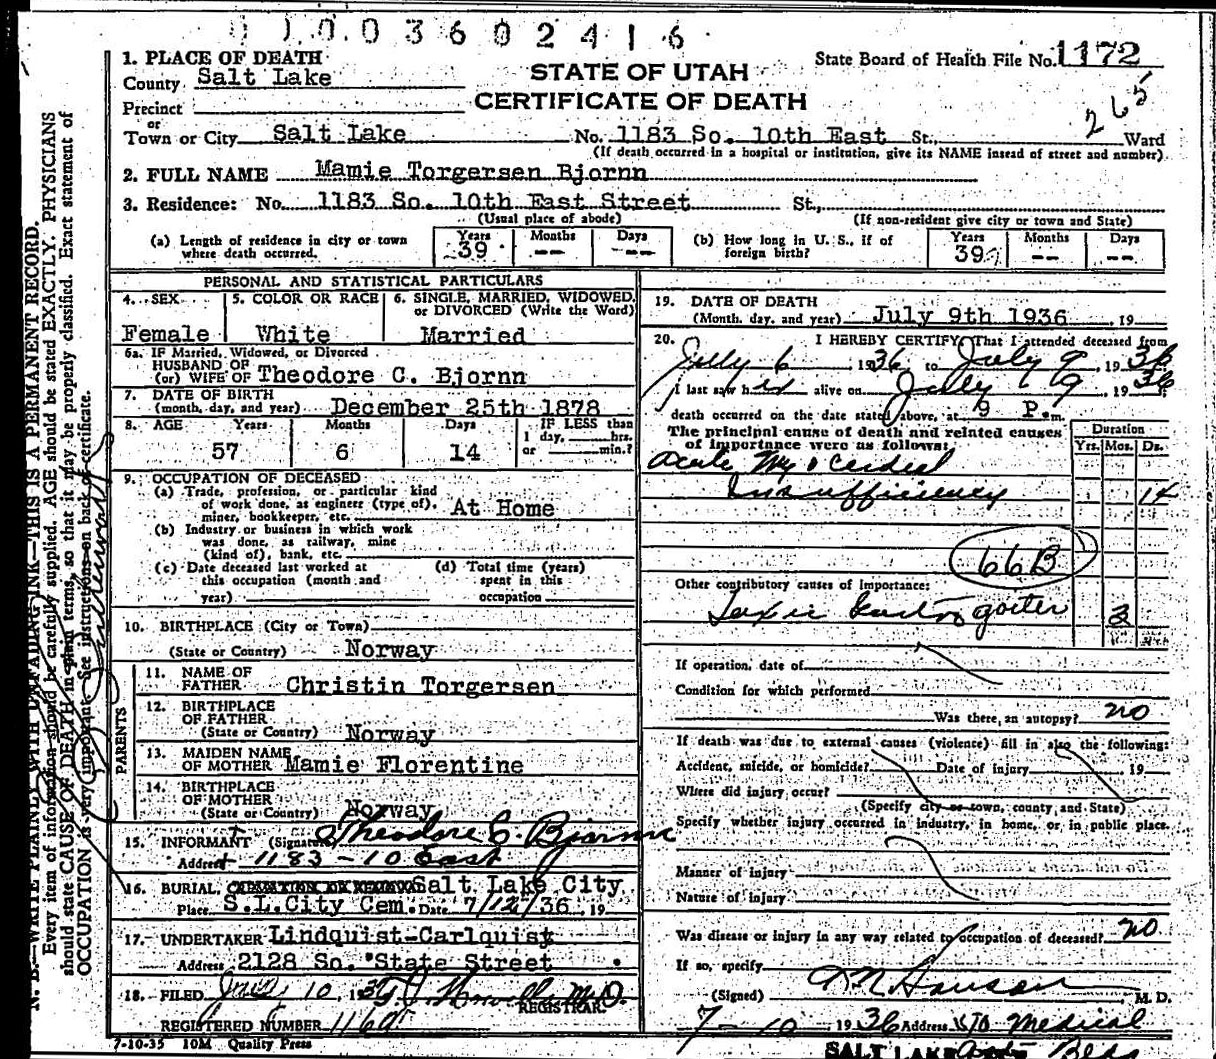 0 0 0 3 6 0 2 4 1 6
1. PLACE OF DEATH
County Salt Lake
State Board of Health File No. 1172
STATE OF UTAH
CERTIFICATE OF DEATH
265
Precinct
or
Town or City Salt Lake No. 1183 So. 10th East St., Ward
(If death occurred in a hospital or institution, give its NAME insead of street and number)
2. FULL NAME Mamie Torgersen Bjornn
3. Residence: No. 1183 So. 10th East Street St.,
(Usual place of abode) (If non-resident give city or town and State)
(a) Length of residence in city or town where death occurred. Years 39 Months -- Days --
(b) How long in U. S., if of foreign birth? Years 39 Months -- Days --
PERSONAL AND STATISTICAL PARTICULARS
4. SEX Female
5. COLOR OR RACE White
6. SINGLE, MARRIED, WIDOWED, or DIVORCED (Write the Word) Married
6a. IF Married, Widowed, or Divorced
HUSBAND OF
(or) WIFE OF Theodore C. Bjornn
7. DATE OF BIRTH
(month, day, and year) December 25th 1878
8. AGE Years 57 Months 6 Days 14
IF LESS than 1 day, hrs. or min.?
9. OCCUPATION OF DECEASED
(a) Trade, profession, or particular kind
of work done, as engineer (type of),
miner, bookkeeper, etc. At Home
(b) Industry or business in which work
was done, as railway, mine
(kind of), bank, etc.
(c) Date deceased last worked at
this occupation (month and
year)
(d) Total time (years)
spent in this
occupation
10. BIRTHPLACE (City or Town)
(State or Country) Norway
PARENTS
11. NAME OF
FATHER Christin Torgersen
12. BIRTHPLACE
OF FATHER
(State or Country) Norway
13. MAIDEN NAME
OF MOTHER Mamie Florentine
14. BIRTHPLACE
OF MOTHER
(State or Country) Norway
15. INFORMANT (Signature) Theodore C. Bjornn
Address 1183 - 10 East
16. BURIAL, Salt Lake City
Place S.L.City Cem. Date 7/12/36, 19
17. UNDERTAKER Lindquist-Carlquist
Address 2128 So. State Street
18. FILED 10, 1936 M.D.
REGISTRAR.
REGISTERED NUMBER 1165
7-10-35 10M Quality Press
19. DATE OF DEATH
(Month, day, and year) July 9th 1936, 19
20. I HEREBY CERTIFY, That I attended deceased from
July 6, 1936, to July 9, 1936
I last saw her alive on July 9, 1936
death occurred on the date stated above, at 9 P.m.
The principal cause of death and related causes
of importance were as follows:
Duration
Yrs. Mos. Ds.
Acute Myocardial
Insufficiency 14
66B
Other contributory causes of importance:
Toxic goiter 3
If operation, date of
Condition for which performed
Was there an autopsy? no
If death was due to external causes (violence) fill in also the following:
Accident, suicide, or homicide? Date of injury 19
Where did injury occur?
(Specify city or town, county, and State)
Specify whether injury occurred in industry, in home, or in public place.
Manner of injury
Nature of injury
Was disease or injury in any way related to occupation of deceased? no
If so, specify
(Signed) Hanson M. D.
7-10, 1936 Address Medical
SALT LAKE
N. B.—WRITE PLAINLY WITH UNFADING INK—THIS IS A PERMANENT RECORD.
Every item of information should be carefully supplied. AGE should be stated EXACTLY. PHYSICIANS
should state CAUSE OF DEATH in plain terms, so that it may be properly classified. Exact statement of
OCCUPATION is very important. See instructions on back of certificate.